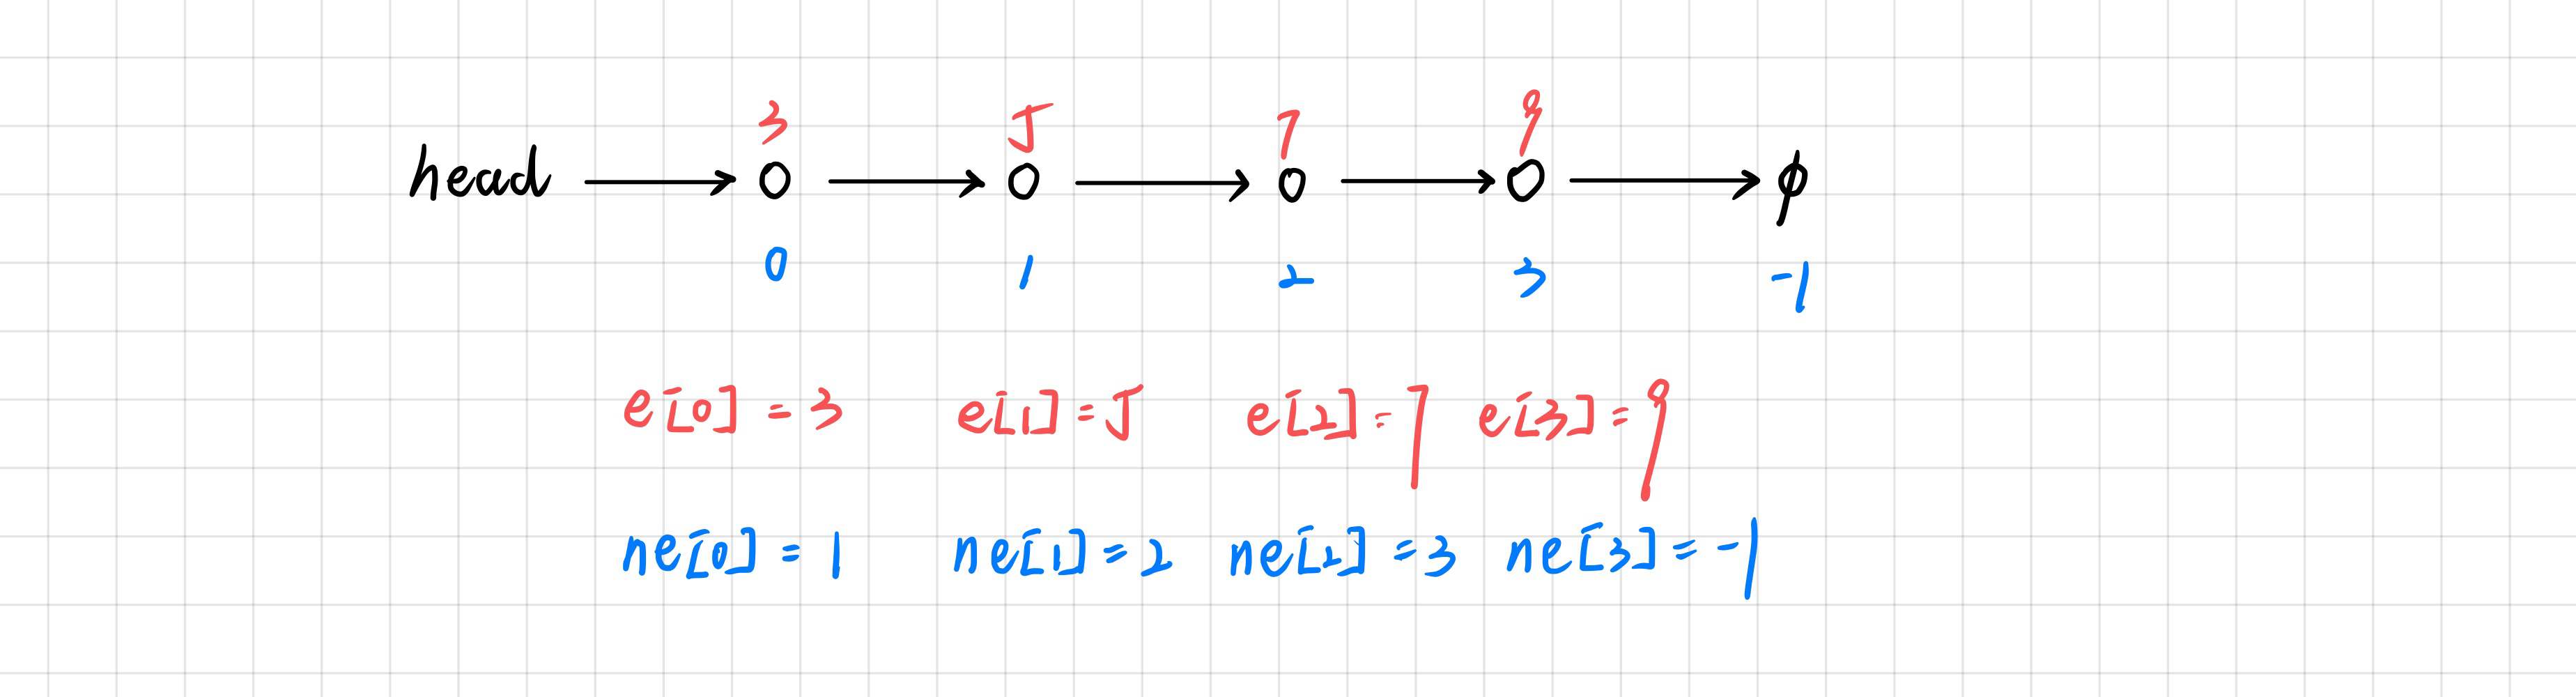 3 5 7 9
head → O → O → O → O → ϕ
0 1 2 3 -1
e[0] = 3 e[1] = 5 e[2] = 7 e[3] = 9
ne[0] = 1 ne[1] = 2 ne[2] = 3 ne[3] = -1